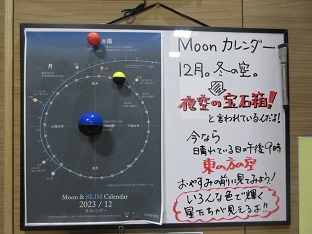 太陽
月
Moon & SLIM Calendar
2023 / 12
月カレンダー
Moon カレンダー
12月。冬の空。
夜空の宝石箱!
と言われているんだよ!
今なら
晴れている日の午後9時
東の方の空
おやすみの前に見てみよう!
いろんな色で輝く
星たちが見えるよ!!